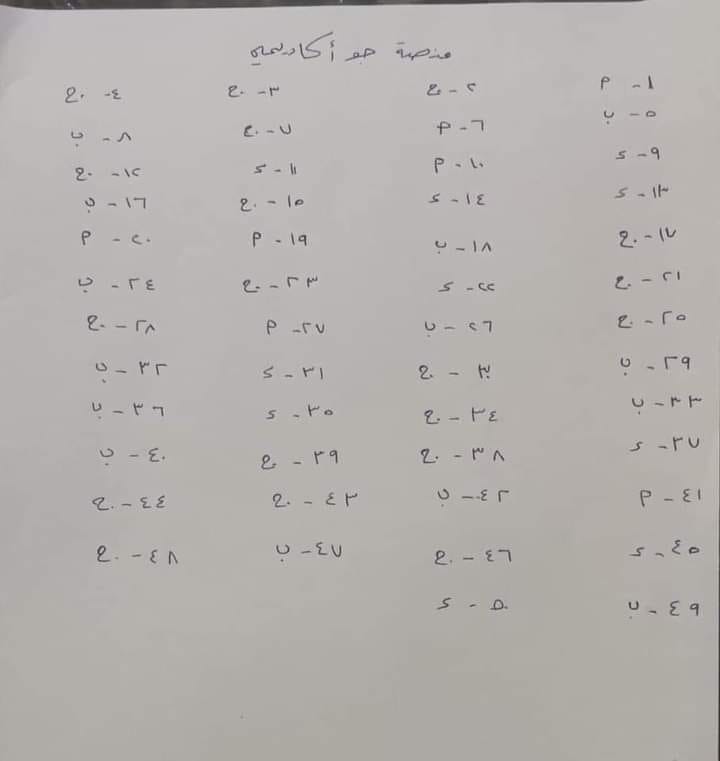 منصة جو أكاديمي
١- أ ٢- ج ٣- ج ٤- ج
٥- ب ٦- أ ٧- ج ٨- ب
٩- د ١٠- أ ١١- د ١٢- ج
١٣- د ١٤- د ١٥- ج ١٦- ب
١٧- ج ١٨- ب ١٩- أ ٢٠- أ
٢١- ج ٢٢- د ٢٣- ج ٢٤- ب
٢٥- ج ٢٦- ب ٢٧- أ ٢٨- ج
٢٩- ب ٣٠- ج ٣١- د ٣٢- ب
٣٣- ب ٣٤- ج ٣٥- د ٣٦- ب
٣٧- د ٣٨- ج ٣٩- ج ٤٠- ب
٤١- أ ٤٢- ب ٤٣- ج ٤٤- ج
٤٥- د ٤٦- ج ٤٧- ب ٤٨- ج
٤٩- ب ٥٠- د